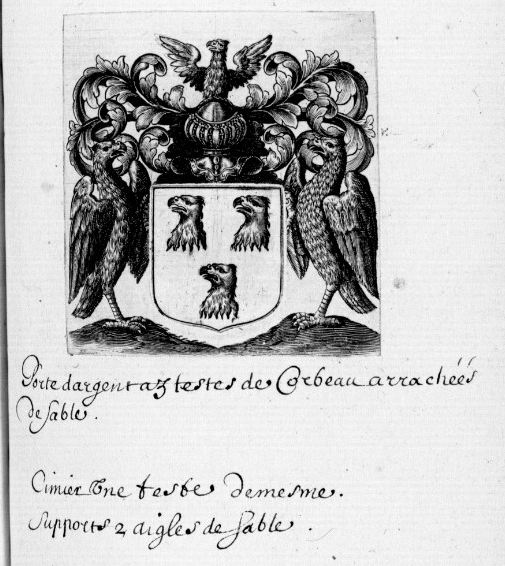 Porte dargent a 3 testes de Corbeau arrachéés
de sable.
Cimier Vne teste demesme.
Supports 2 aigles de sable.